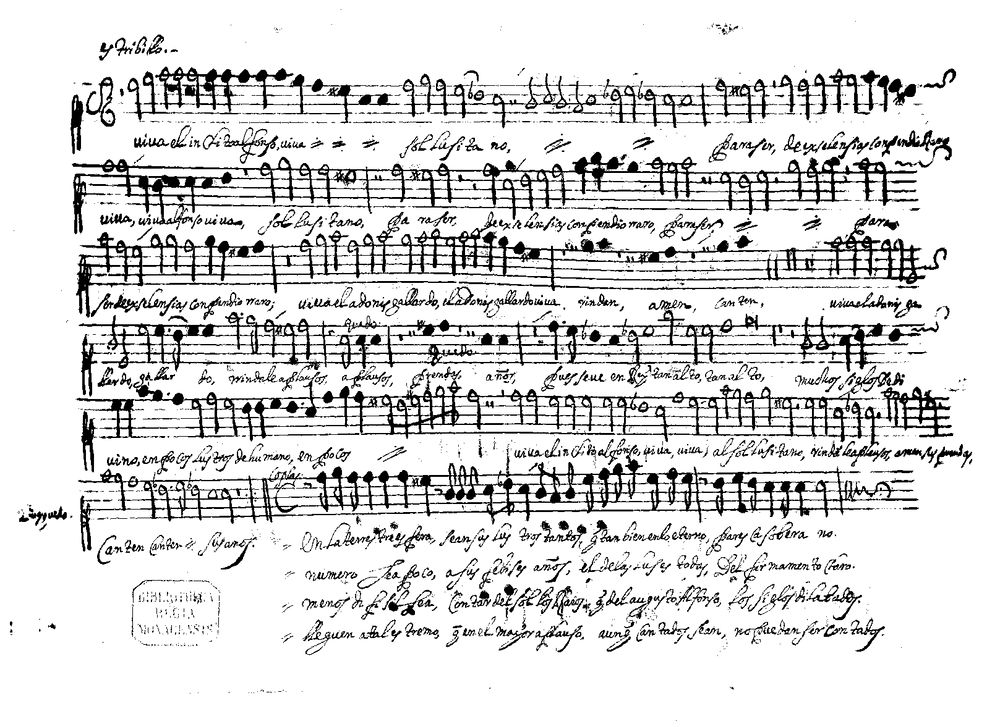 estribillo.
viva el inclito alfonso, viva sol lusitano, para ser, de exselensias conpendio Raro
viva, viva alfonso viva, sol lusitano, para ser, de exselensias conpendio rraro, para ser para
ser de exselensias conpendio rraro; viva el adonis gallardo, el adonis gallardo viva rinden, amen, canten, viva el adonis ga
llardo, gallar do, rrindale aplausos, aplausos, prendas, años, pues se ve en tan alto, tan alto, muchos siglos
quedo
quedo
vino, en pocos lustros de humano, en pocos viva el inclito alfonso, viva, viva) al sol lusitano, rinde le aplausos, amen
Coplas
Canten Canten sus años. En la terrestre esfera, sean sus lustros tantos, q̃ tan bien en lo eterno, pares ca sobera no.
numero sea poco, a sus años, el de las luses todas, Del firmamento claro.
menos de si sol sea, Contar del sol los Raios, q̃ del augusto Alfonso, los siglos dilatados.
lleguen a tal estremo, q̃ en el mayor aplauso, aunq̃ Cantados sean, no puedan ser Contados.
BIBLIOTHECA
REGIA
MONACENSIS